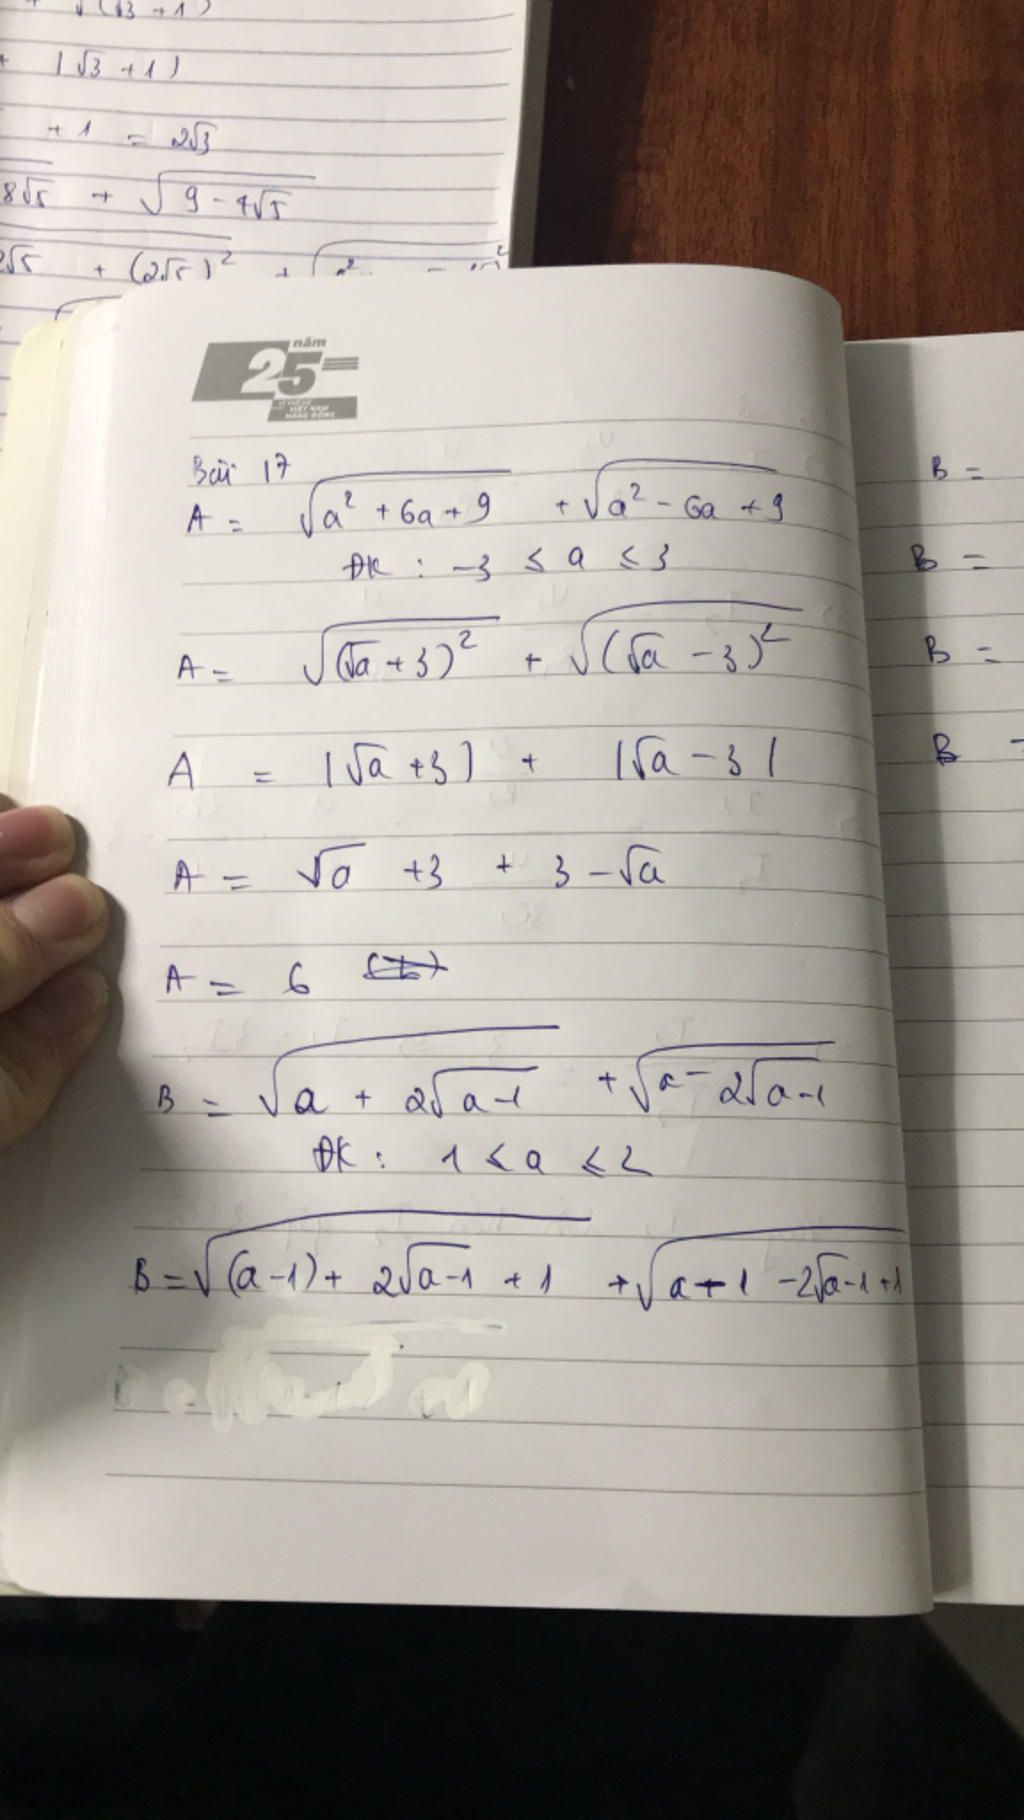 + √(√3 + 1)
+ |√3 + 1)
+ 1 = 2√3
8√5 + √9 - 4√5
2√5 + (2√5)² +
25 năm
VIỆT NAM
NĂNG ĐỘNG
Bài 17
A = √a² + 6a + 9 + √a² - 6a + 9
ĐK : -3 ≤ a ≤ 3
A = √(√a + 3)² + √(√a - 3)²
A = |√a + 3| + |√a - 3|
A = √a + 3 + 3 - √a
A = 6
B = √a + 2√a-1 + √a - 2√a-1
ĐK : 1 ≤ a ≤ 2
B = √(a-1) + 2√a-1 + 1 + √a-1 - 2√a-1+1
B =
B =
B =
B -